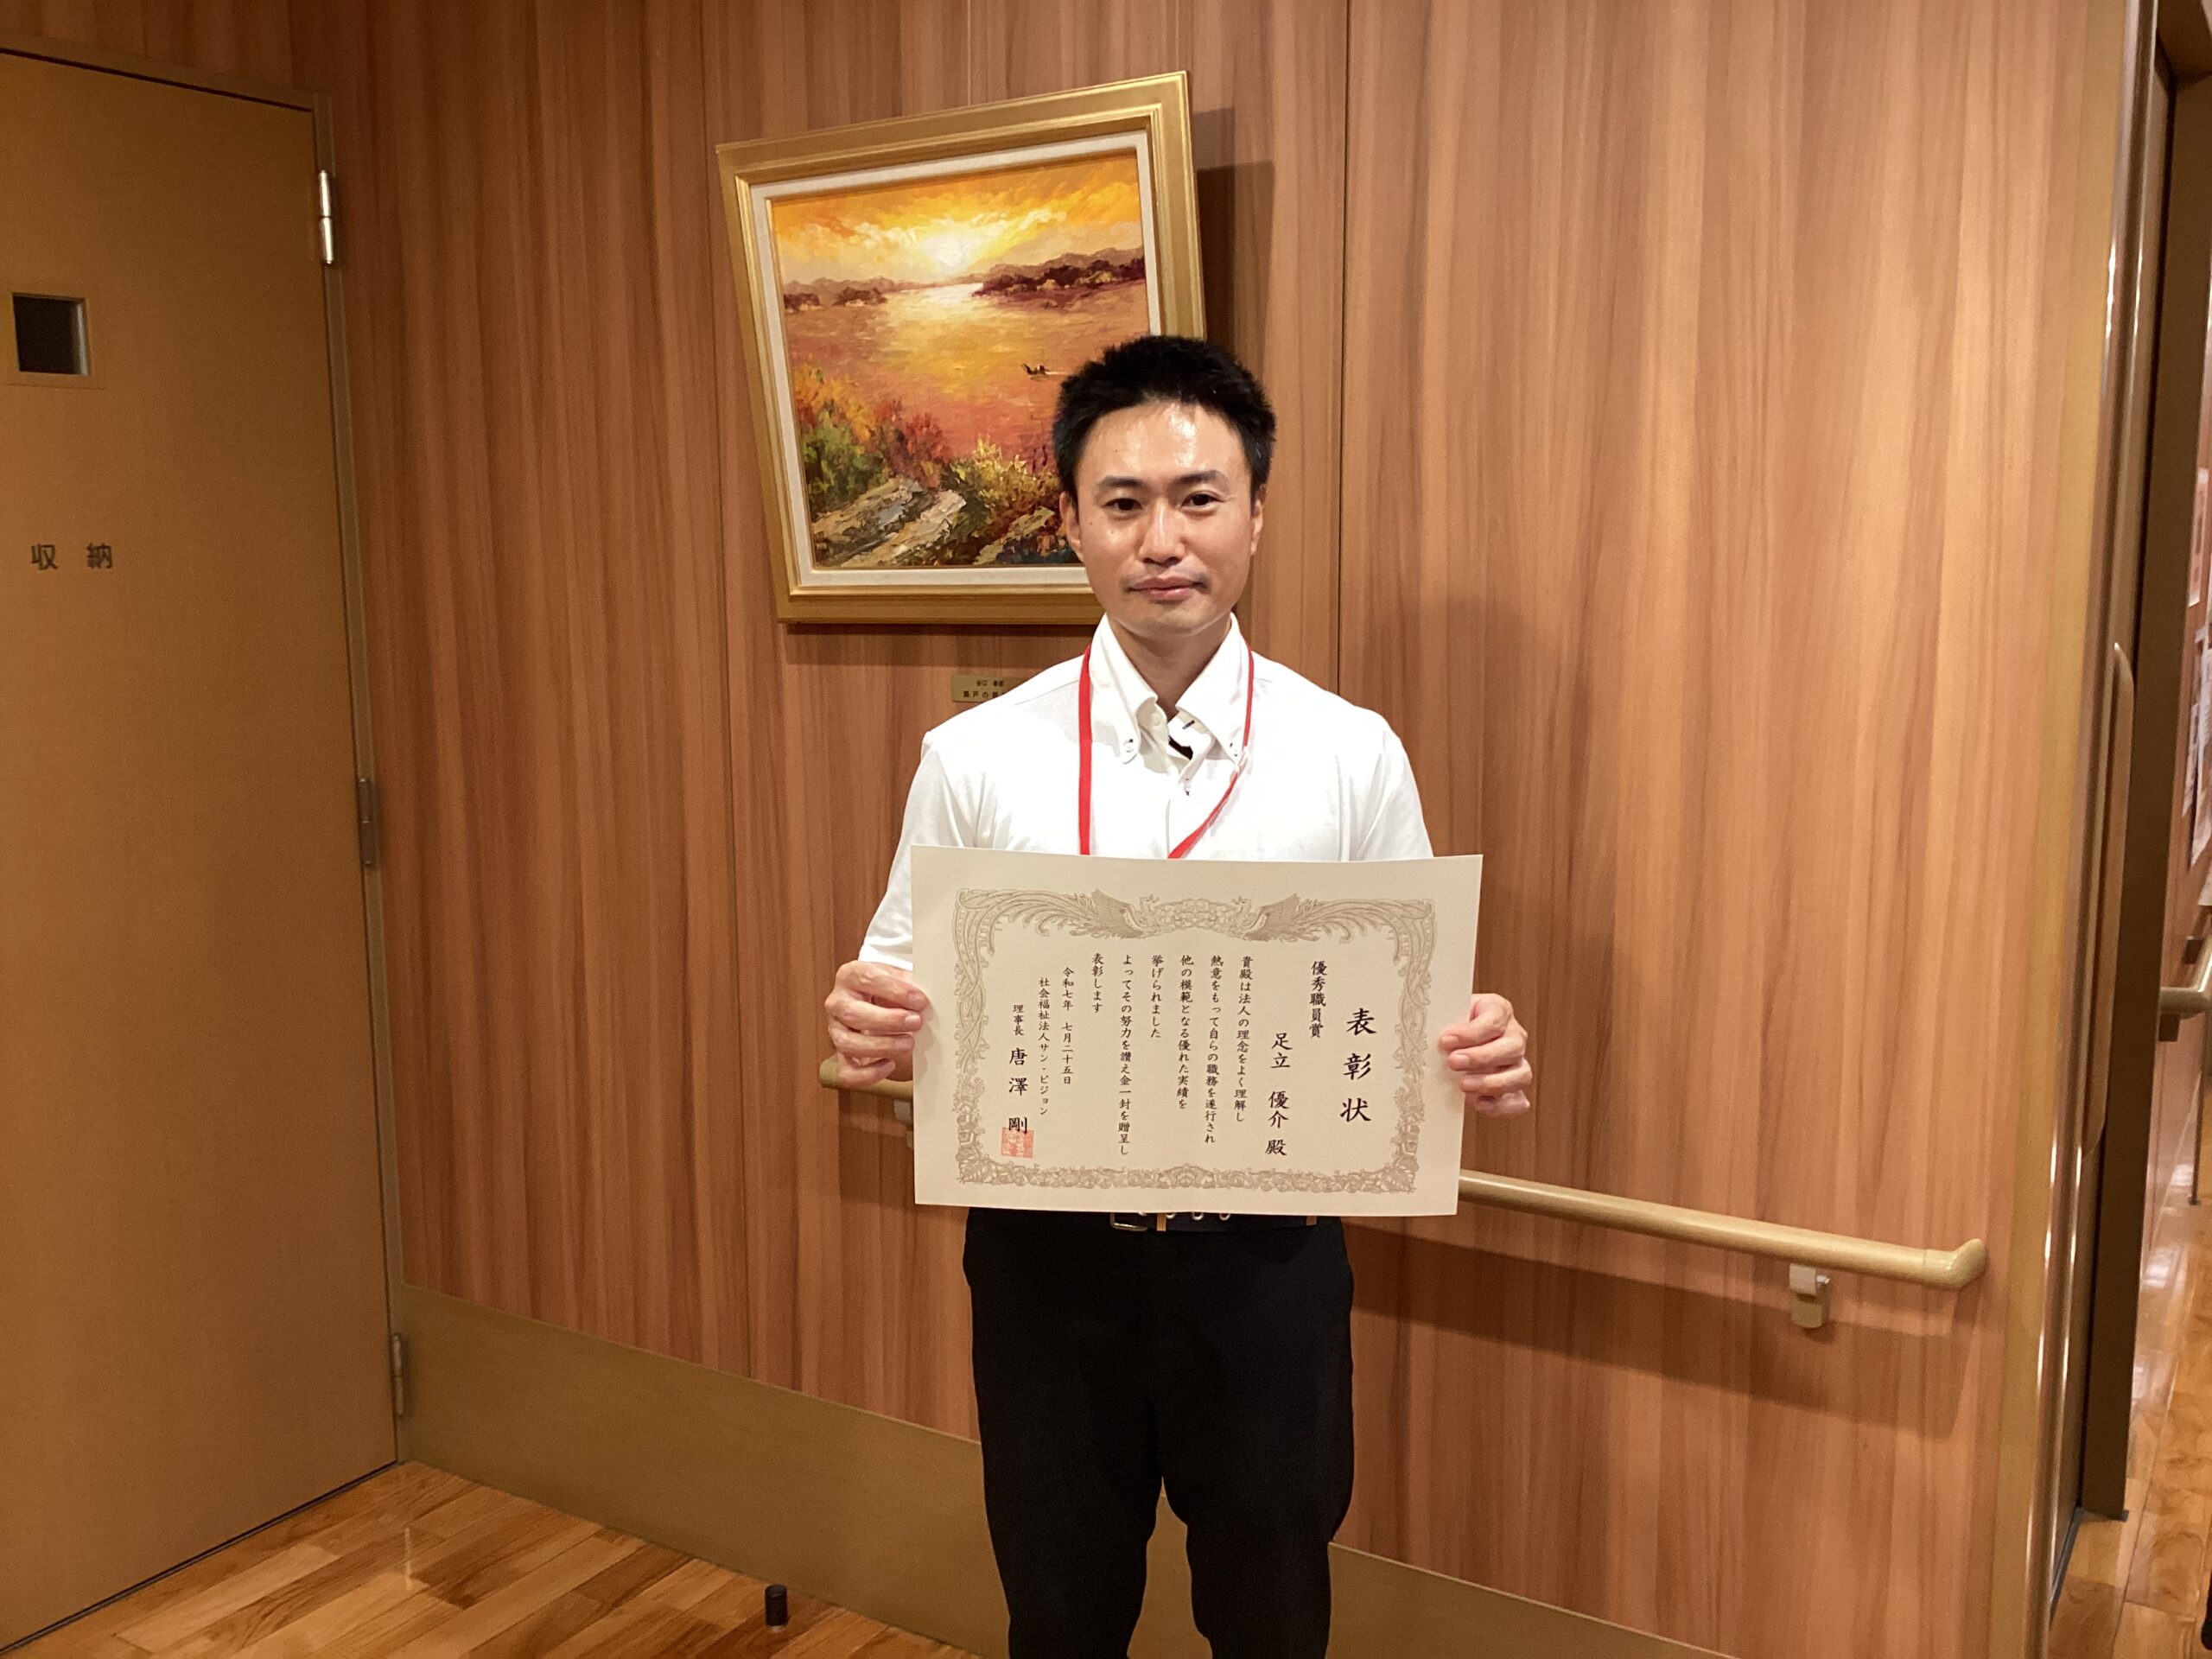 収納
表彰状
優秀職員賞
足立 優介 殿
貴殿は法人の理念をよく理解し
熱意をもって自らの職務を遂行され
他の模範となる優れた実績を
挙げられました
よってその努力を讃え金一封を贈呈し
表彰します
令和七年 七月二十五日
社会福祉法人サン・ビジョン
理事長 唐澤 剛